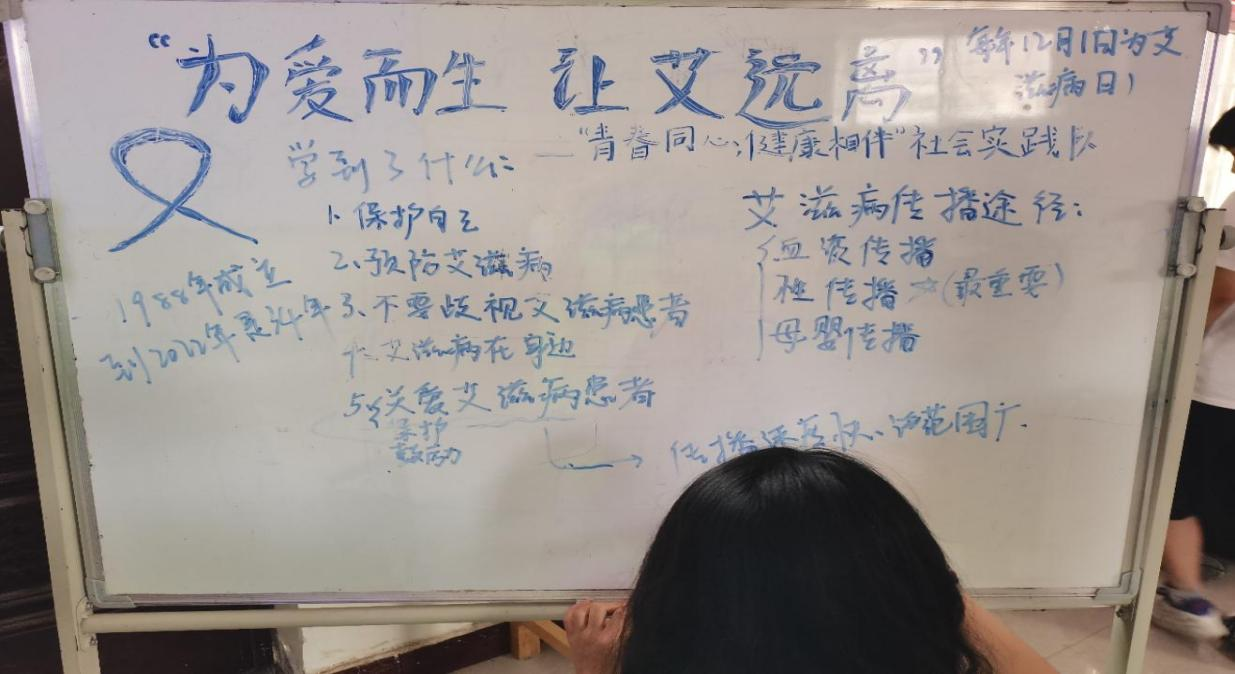 “为爱而生 让艾远离”
每年12月1日为艾
滋病日)
——“青春同心,健康相伴”社会实践队
学到了什么:
1、保护自己
2、预防艾滋病
3、不要歧视艾滋病患者
4、艾滋病在身边
5、关爱艾滋病患者
保护
鼓励
1988年成立
到2022年是34年
艾滋病传播途径:
血液传播
性传播☆(最重要)
母婴传播
传播速度快、范围广